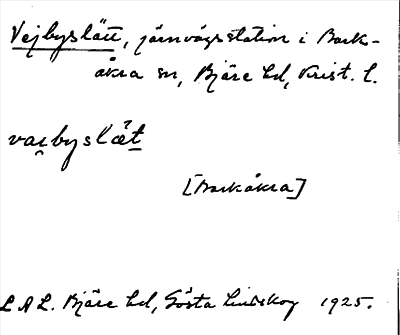 Vejbyslätt, järnvägsstation i Bark-
åkra sn, Bjäre hd, Krist. l.
vai̯byslæ̀t
[Barkåkra]
L A L. Bjäre hd, Gösta Lindskog 1925.